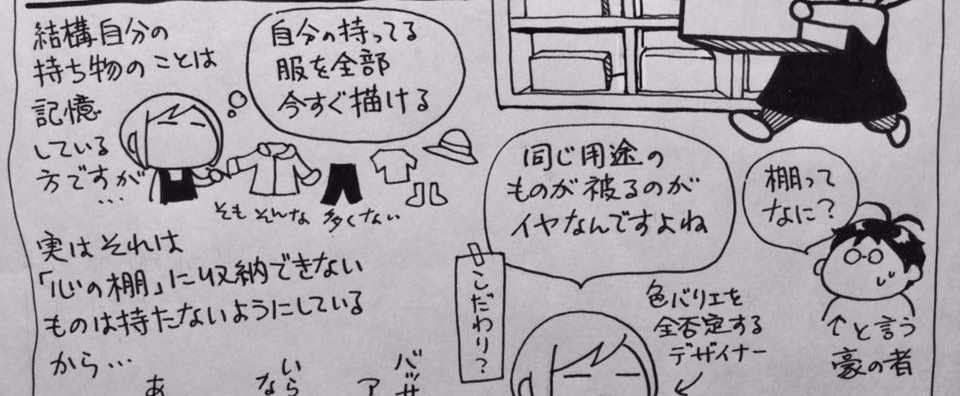 結構自分の
持ち物のことは
記憶
している
方ですが
…
自分の持ってる
服を全部
今すぐ描ける
そもそもそんな多くない
実はそれは
「心の棚」に収納できない
ものは持たないようにしている
から…
同じ用途の
ものが被るのが
イヤなんですよね
こだわり?
色バリエを
全否定する
デザイナー
棚って
なに?
↑と言う
豪の者
バッサ
ア
いら
な
あ